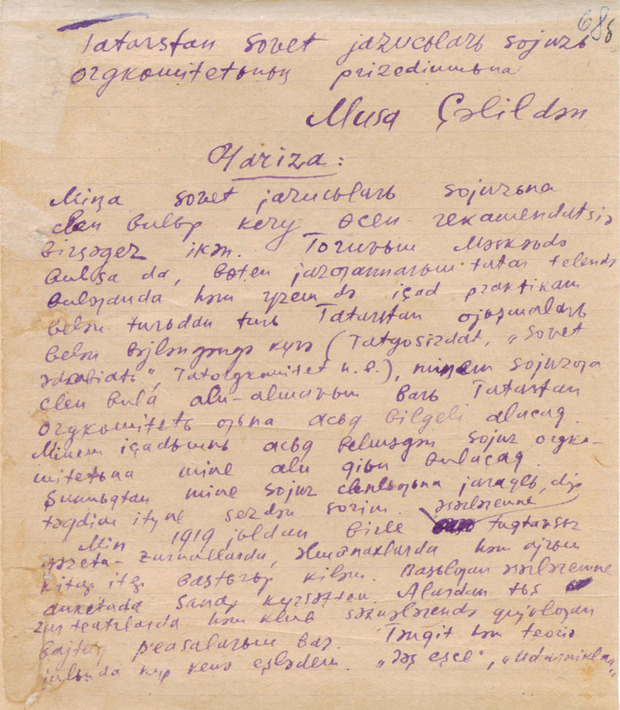 68
Tatarstan sovet jazucьlarь sojuzь
orgkomitetьnьꞑ prizediumьna
Musa Çəlildən
Ƣariza:
Miꞑa sovet jazucьlarь sojuzьna
clen bulьp kerү өcen rekamendatsiə
birsəgez ikən. Toruvьm Məskəvdə
bulsa da, bөten jazƣannarьm tatar telendə
bulƣanda həm үzem də içad praktikam
belən turьdan turь Tatarstan ojьşmalarь
belən bəjləngəngə kүrə (Tatgosizdat, „Sovet
ədəbiatь", Tatorgkomitet h.b.), minem sojuzƣa
clen bula alu-almavьm barь Tatarstan
orgkomitetь ƣьna acьq bilgeli alacaq.
Minem içadьmnь acьq belməgən sojuz orgko-
mitetьna mine alu qijьn bulacaq.
Şunlьqtan mine sojuz clenlegenə jaraqlь, dip
təqdim itүne sezdən sorьjm.
Min 1919 jьldan birle əsərləremne tuqtavsьz
gəzeta-zurnallarda, əlmənaxlarda həm ajrьm
kitap itep bastьrьp kiləm. Basьlƣan əsərləremne
anketada sanap kүrsəttem. Alardan tьş
zur teatrlarda həm klub səxnələrendə qujьlƣan
bajtaq pjesalarьm bar. Tənqit həm teoriə
julьnda kүp kenə eşlədem. „Jəş eşce", „Udarniklar",